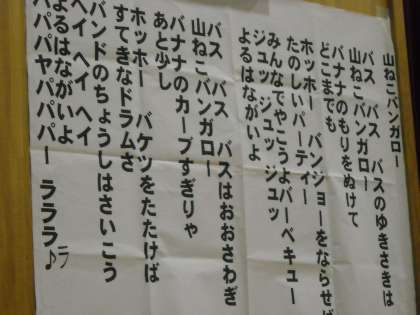 山ねこバンガロー
バス バス バスのゆきさきは
山ねこバンガロー
バナナのもりをぬけて
どこまでも
ホッホー バンジョーをならせば
たのしいパーティー
みんなでやこうよバーベキュー
ジュッ ジュッ ジュッ
よるはながいよ
バス バス バスはおおさわぎ
山ねこバンガロー
バナナのカーブすぎりゃ
あと少し
ホッホー バケツをたたけば
すてきなドラムさ
バンドのちょうしはさいこう
ヘイ ヘイ ヘイ
よるはながいよ
パパパヤパパパー ラララ♪ラ